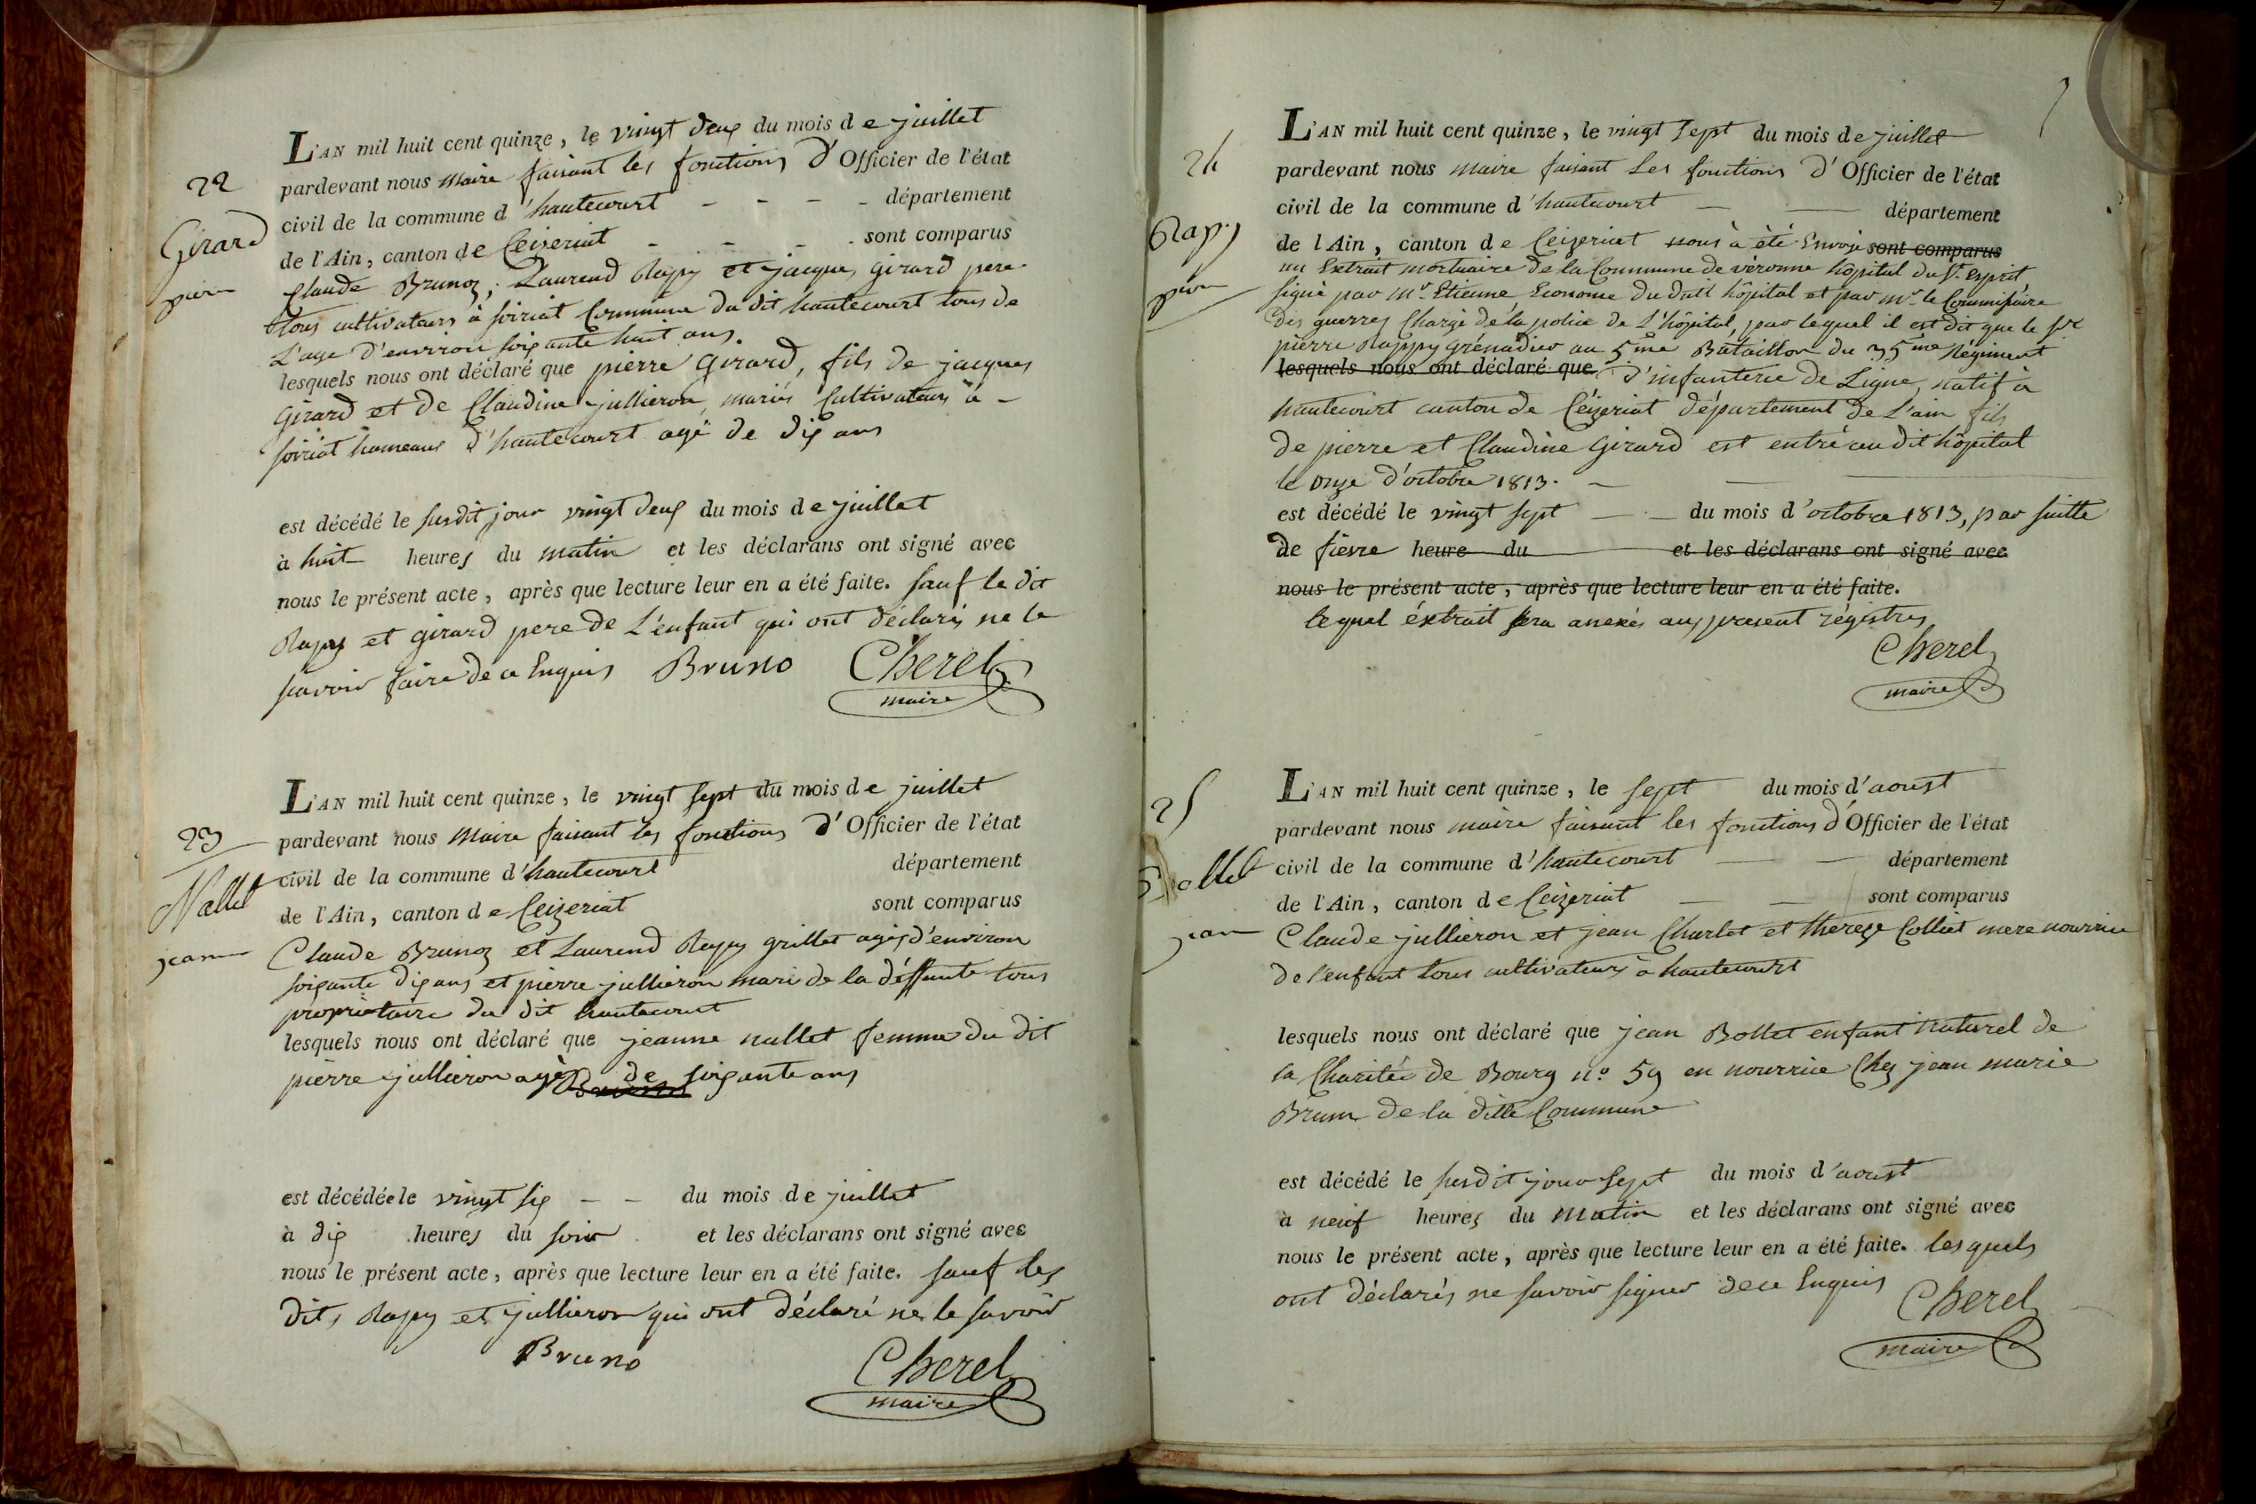 22
Girard
pierre
L'AN mil huit cent quinze, le vingt deux du mois de juillet
pardevant nous maire faisant les fonctions d'Officier de l'état
civil de la commune d'hautecourt - - - - département
de l'Ain, canton de Ceizeriat - - - . sont comparus
Claude Brunoz, Laurend Rappy et jacques girard pere
tous cultivateurs à soiriat Commune du dit hautecourt tous de
L'age d'environ soixante huit ans.
lesquels nous ont déclaré que pierre Girard, fils de jacques
Girard et de Claudine jullieron, mariés Cultivateurs à -
soiriat hameaux d'hautecourt agé de dix ans
est décédé le susdit jour vingt deux du mois de juillet
à huit heures du matin et les déclarans ont signé avec
nous le présent acte, après que lecture leur en a été faite. sauf le dit
Rapy et girard pere de L'enfant qui ont déclarés ne le
savoir faire de ce Enquis Bruno Cherel
maire
23
Nallet
jeanne
L'AN mil huit cent quinze, le vingt sept du mois de juillet
pardevant nous Maire faisant les fonctions d'Officier de l'état
civil de la commune d'hautecourt département
de l'Ain, canton de Ceizeriat sont comparus
Claude Brunoz et Laurend Rappy grillet agés d'environ
soixante dix ans et pierre jullieron mari de la déffunte tous
propriétaire du dit hautecourt
lesquels nous ont déclaré que jeanne nallet femme du dit
pierre jullieron agée de soixante ans
est décédée le vingt six - - du mois de juillet
à dix heures du soir et les déclarans ont signé avec
nous le présent acte, après que lecture leur en a été faite. sauf les
dits Rapy et jullieron qui ont déclaré ne le savoir
Bruno Cherel
maire
24
Rapy
pierre
L'AN mil huit cent quinze, le vingt sept du mois de juillet
pardevant nous maire faisant les fonctions d'Officier de l'état
civil de la commune d'hautecourt — — département
de l'Ain, canton de Ceizeriat nous à été Envoié sont comparus
un Extrait mortuaire de la Commune de véronne hôpital du St. Esprit
signé par Mr. Etienne, Econome du dutt hôpital et par Mr. le Commissaire
des guerres Chargé de la police de L'hôpital, par lequel il est dit que le sr
pierre Rappy grénadier au 5ème Bataillon du 35ème Régiment
lesquels nous ont déclaré que d'infanterie de Ligne, natif à
hautecourt canton de Céizeriat département de L'ain fils
de pierre et Claudine Girard est entré au dit hôpital
le onze d'octobre 1813. —
est décédé le vingt sept — - du mois d'octobre 1813, par suitte
de fievre heure du et les déclarans ont signé avec
nous le présent acte, après que lecture leur en a été faite.
lequel éxtrait sera anexés aux present régistres
Cherel
maire
25
jean
L'AN mil huit cent quinze, le sept du mois d'aoust
pardevant nous maire faisant les fonctions d'Officier de l'état
civil de la commune d'hautecourt — — département
de l'Ain, canton de Ceizeriat — — sont comparus
Claude jullieron et jean Charlet et thereze Colliet mere nourrice
de l'enfant tous cultivateurs à hautecourt
lesquels nous ont déclaré que jean Bollet enfant naturel de
la Charitée de Bourg no. 59 en nourrice Chez jean marie
Brunn de la ditte Commune
est décédé le susdit jour sept du mois d'aoust
à neuf heures du matin et les déclarans ont signé avec
nous le présent acte, après que lecture leur en a été faite. lesquels
ont déclarés ne savoir signer de ce Enquis Cherel
maire